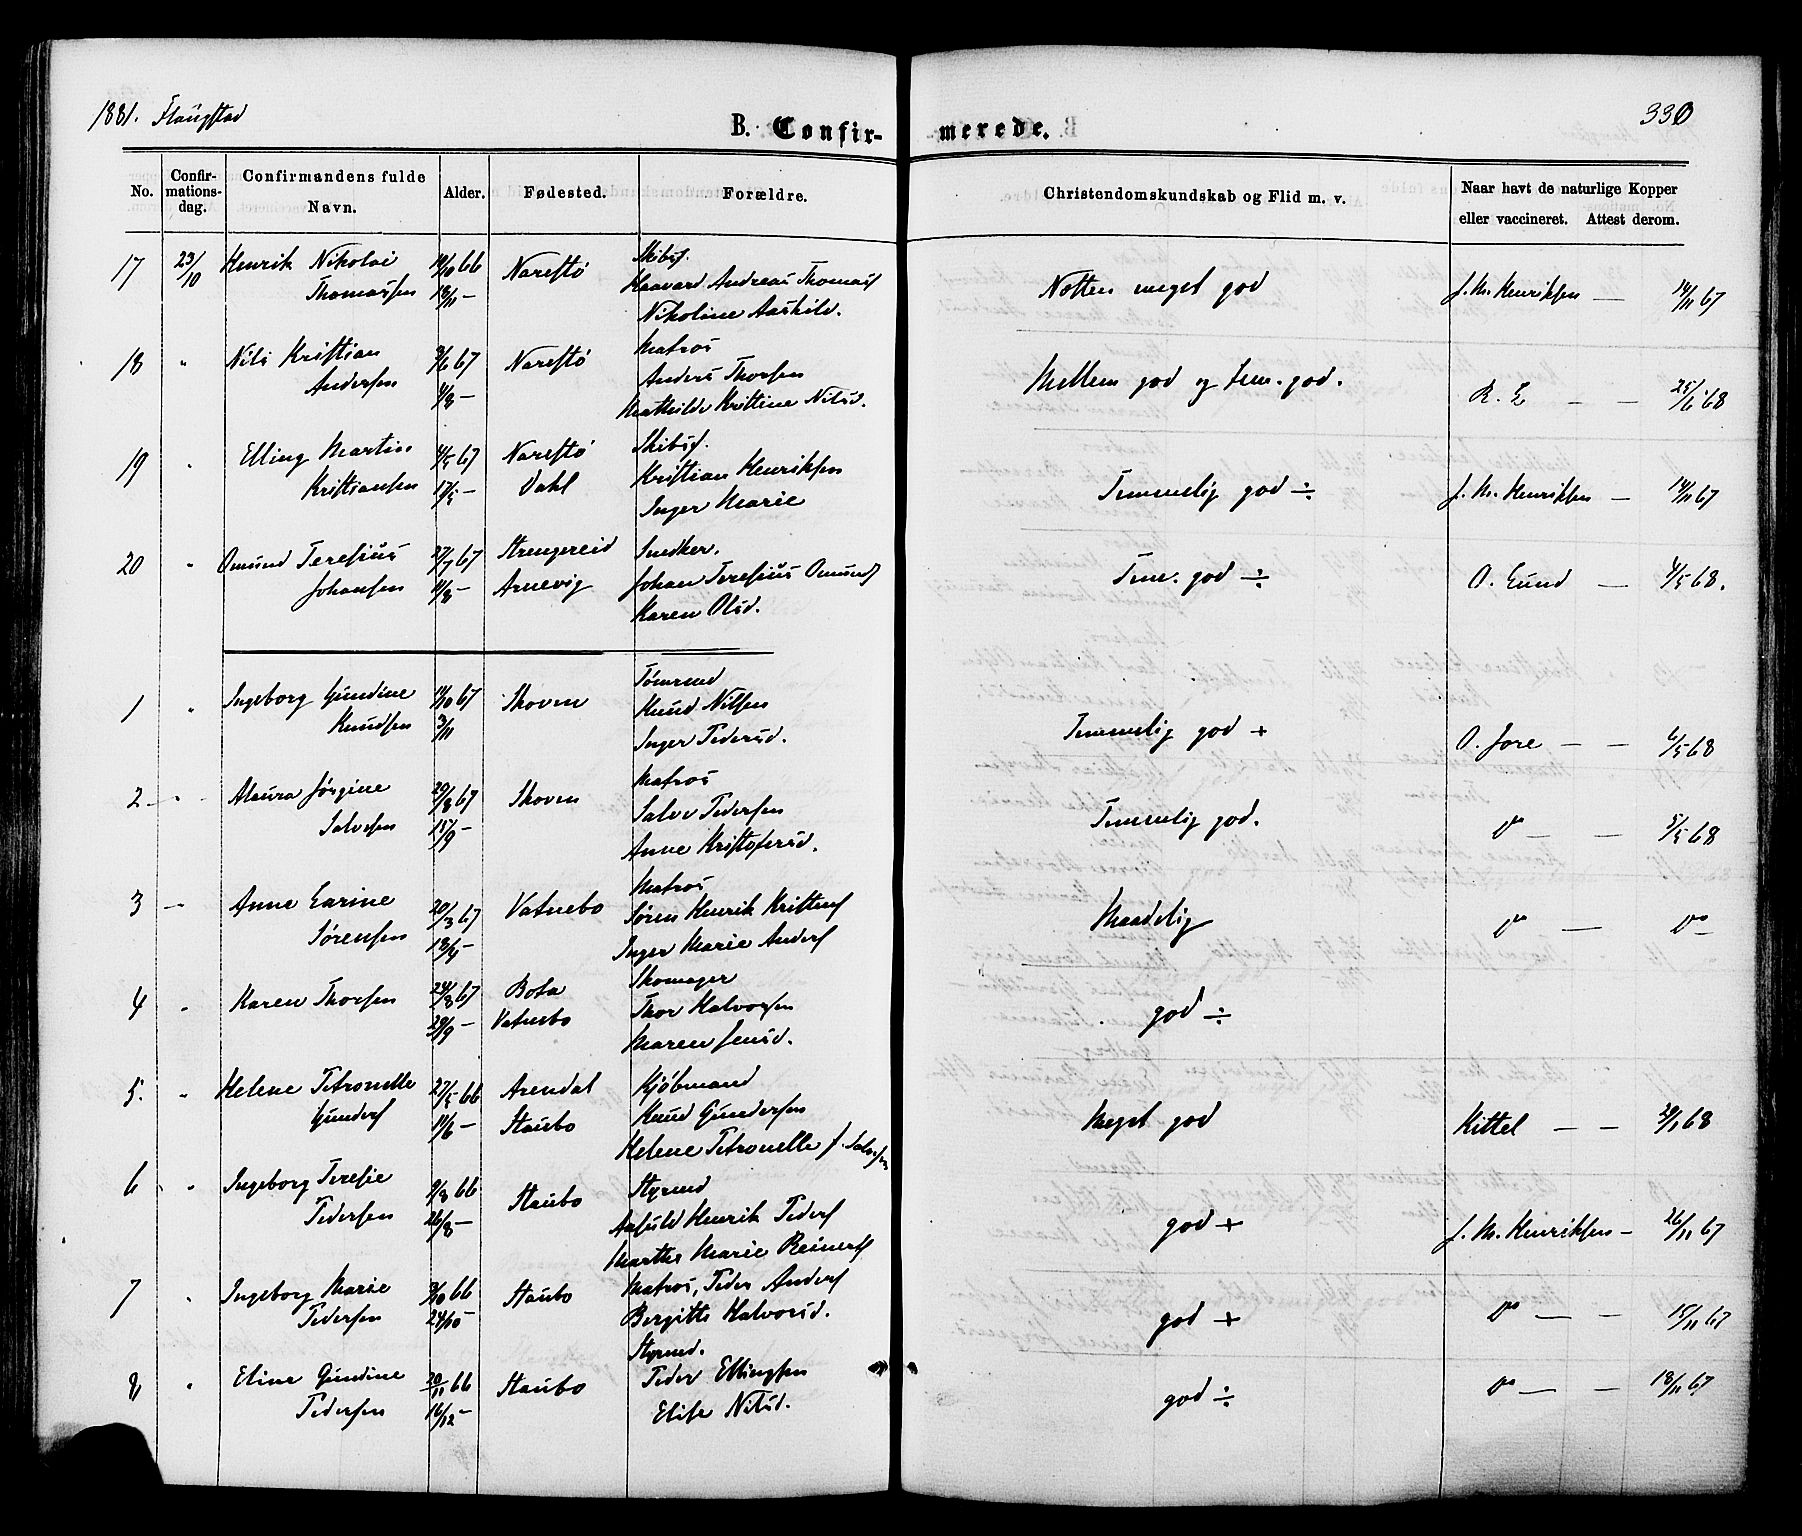 1881. Flangstad
330
B. Confir-
merede.
No.
Confir-
mations-
dag.
Confirmandens fulde
Navn.
Alder.
Fødested.
Forældre.
Christendomskundskab og Flid m. v.
Naar havt de naturlige Kopper
eller vaccineret. Attest derom.
17 23/10 Henrik Nikolai 19/10 66 Narestø Skibsf. Nœsten meget god J. M. Henriksen — 14/11 67
Thomassen 18/11 — Haavard Andreas Thomass
Nikoline Aashild.
18 " Nils Kristian 3/6 67 Narestø Matros Mellem god og tem. god. R. E — — 25/6 68
Andersen 4/8 — Anders Thorsen
Mathilde Kristine Nilsd.
19 " Elling Martin 4/5 67 Narestø Skibsf. Temmelig god ÷ J. M. Henriksen — 14/11 67
Kristiansen 17/5 — Dahl Kristian Henriksen
Inger Marie
20 " Omund Teresius 27/7 67 Strengereid Snedker. Tem. god ÷ O. Lund — 4/5 68.
Johansen 11/8 — Arnevig Johan Teresius Omunds
Karen Olsd.
1 " Ingeborg Gundine 11/10 67 Skoven Tømmd Temmelig god + O. Jore — — 6/5 68
Knudsen 3/11 Knud Nilsen
Inger Pedersd.
2 — " Maura Jørgine 29/8 67 Skoven Matros Temmelig god. do — — 5/5 68
Salvesen 15/9 — Salve Pedersen
Anne Kristofersd.
3 — Anne Larine 20/3 67 Vatnebo Matros Maadelig do — do —
Sørensen 18/4 — Søren Henrik Kristens
Inger Marie Anders
4 " Karen Thorsen 24/8 67 Bota Skomager god ÷
29/9 — Vatnebo Thor Halvorsen
Maren Jensd.
5. " Helene Petronelle 27/5 66 Arendal Kjøbmand Meget god Kittel — — 29/1 68
Gunders 11/6 — Staubo Knud Gundersen
Helene Petronelle f. Salvesen
6 " Ingeborg Terese 9/8 66 Staubo Styrmd god + J. M. Henriksen — 26/11 67
Pedersen 26/8 — Anfuld Henrik Peders
Marthe Marie Reinerts
7 " Ingeborg Marie 3/10 66 Staubo Matros, Peder Anders god + do — — 15/11 67
Pedersen 24/10 — Bergitte Halvorsd.
Styrmd.
8 " Eline Gundine 20/11 66 Staubo Peder Ellingsen god ÷ do — — 18/11 67
Pedersen 16/12 — Elise Nilsd.